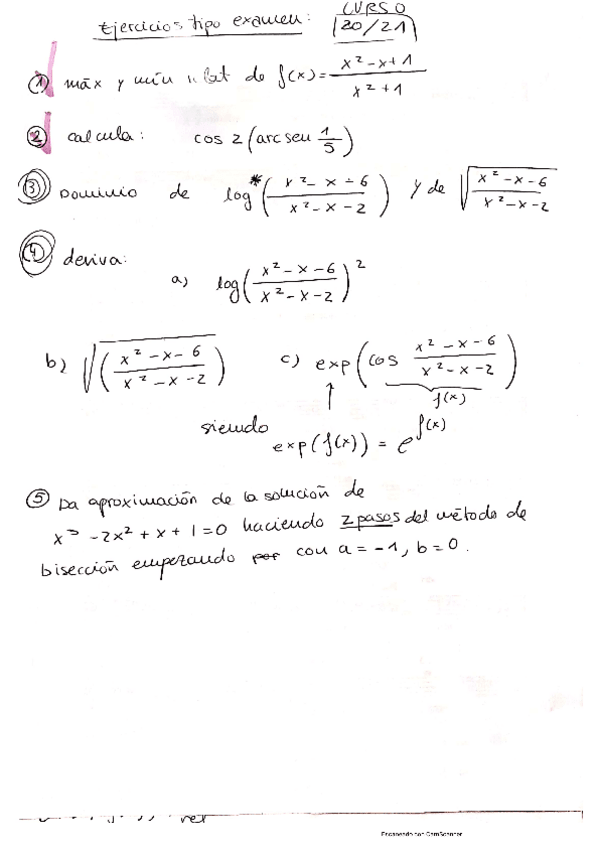 Ejercicios tipo examen: CURSO 20/21
① máx y mín f(x) = (x² - x + 1)/(x² + 1)
② calcula: cos 2 (arcsen 1/5)
③ Dominio de log* ((x² - x - 6)/(x² - x - 2)) y de √((x² - x - 6)/(x² - x - 2))
④ deriva:
a) log((x² - x - 6)/(x² - x - 2))²
b) √((x² - x - 6)/(x² - x - 2)) c) exp(cos (x² - x - 6)/(x² - x - 2))
f(x)
siendo
exp(f(x)) = e^f(x)
⑤ Da aproximación de la solución de
x³ - 2x² + x + 1 = 0 haciendo 2 pasos del método de
bisección empezando por con a = -1, b = 0.
Escaneado con CamScanner